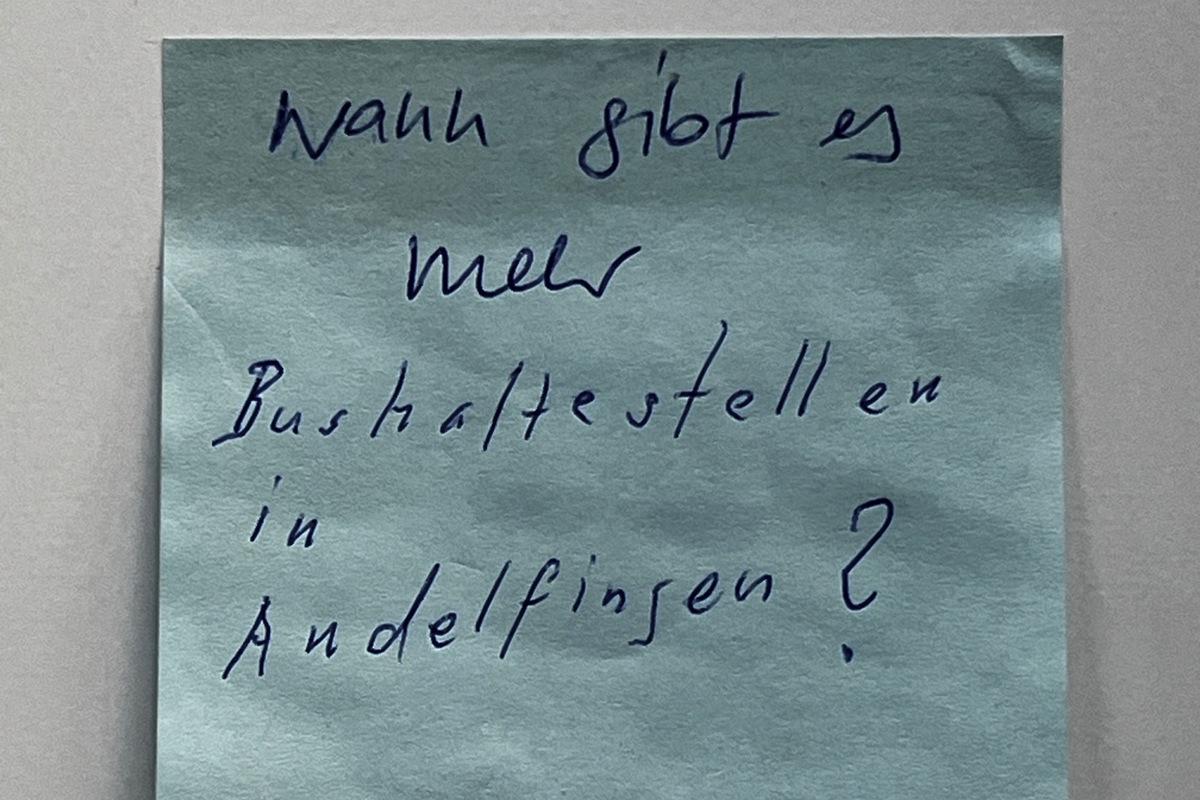 wann gibt es
mehr
Bushaltestellen
in
Andelfingen?